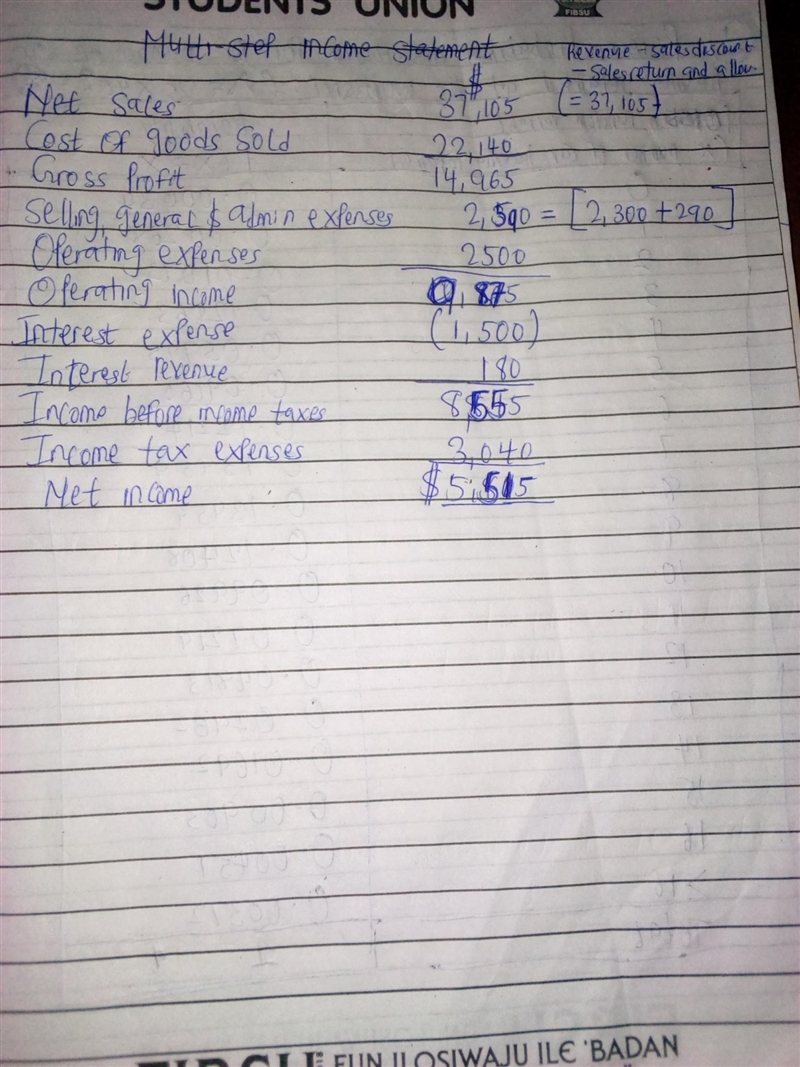 STUDENTS' UNION
FIBSU
Multi-step income statement
Revenue - sales discount
- sales return and allow.
$
Net sales 37,105 (= 37,105)
Cost of goods sold 22,140
Gross profit 14,965
Selling, general & admin expenses 2,590 = [2,300 + 290]
Operating expenses 2500
Operating income 9,875
Interest expense (1,500)
Interest revenue 180
Income before income taxes 8555
Income tax expenses 3,040
Net income $5,515
EUN ILOSIWAJU ILE 'BADAN